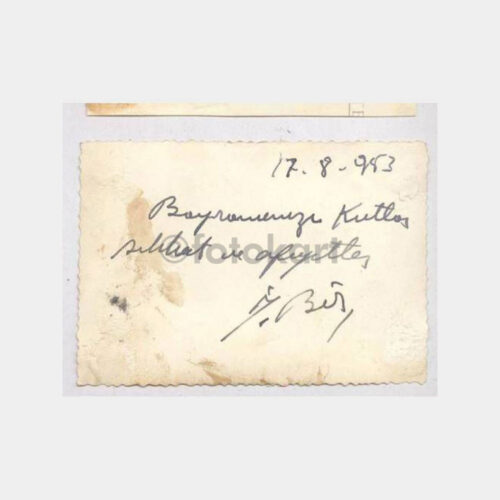 17.8.953
Bayramınızı Kutlar
sıhhat ve afiyetler
@fotokart